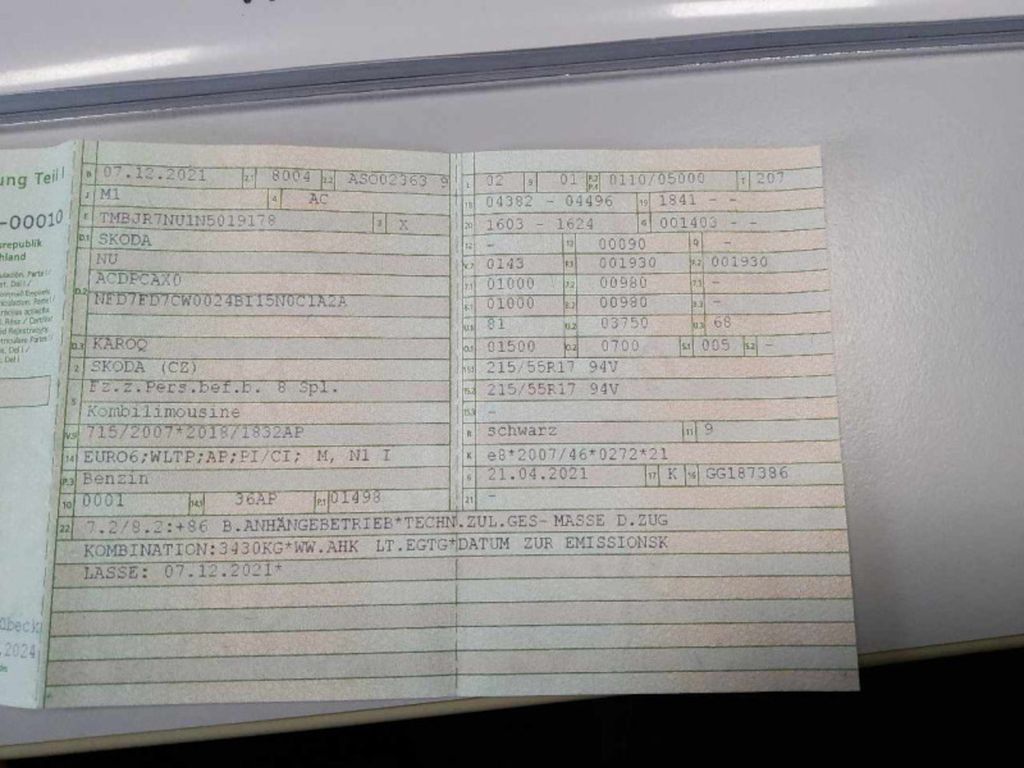 ung Teil I
-00010
srepublik
hland
B 07.12.2021 2.1 8004 2.2 ASO02363 9
J M1 4 AC
E TMBJR7NU1N5019178 3 X
D.1 SKODA
NU
D.2 ACDPCAX0
NFD7FD7CW0024BI15N0C1A2A
D.3 KAROQ
2 SKODA (CZ)
5 Fz.z.Pers.bef.b. 8 Spl.
Kombilimousine
V.9 715/2007*2018/1832AP
14 EURO6;WLTP;AP;PI/CI; M, N1 I
P.3 Benzin
10 0001 14.1 36AP P.1 01498
L 02 9 01 P.2 P.4 0110/05000 T 207
18 04382 - 04496 19 1841 - -
20 1603 - 1624 G 001403 - -
12 - 13 00090 Q -
V.7 0143 F.1 001930 F.2 001930
7.1 01000 7.2 00980 7.3 -
8.1 01000 8.2 00980 8.3 -
U.1 81 U.2 03750 U.3 68
O.1 01500 O.2 0700 S.1 005 S.2 -
15.1 215/55R17 94V
15.2 215/55R17 94V
15.3 -
R schwarz 11 9
K e8*2007/46*0272*21
6 21.04.2021 17 K 16 GG187386
21 -
22 7.2/8.2:+86 B.ANHÄNGEBETRIEB*TECHN.ZUL.GES-MASSE D.ZUG
KOMBINATION:3430KG*WW.AHK LT.EGTG*DATUM ZUR EMISSIONSK
LASSE: 07.12.2021*
dbeck
.2024